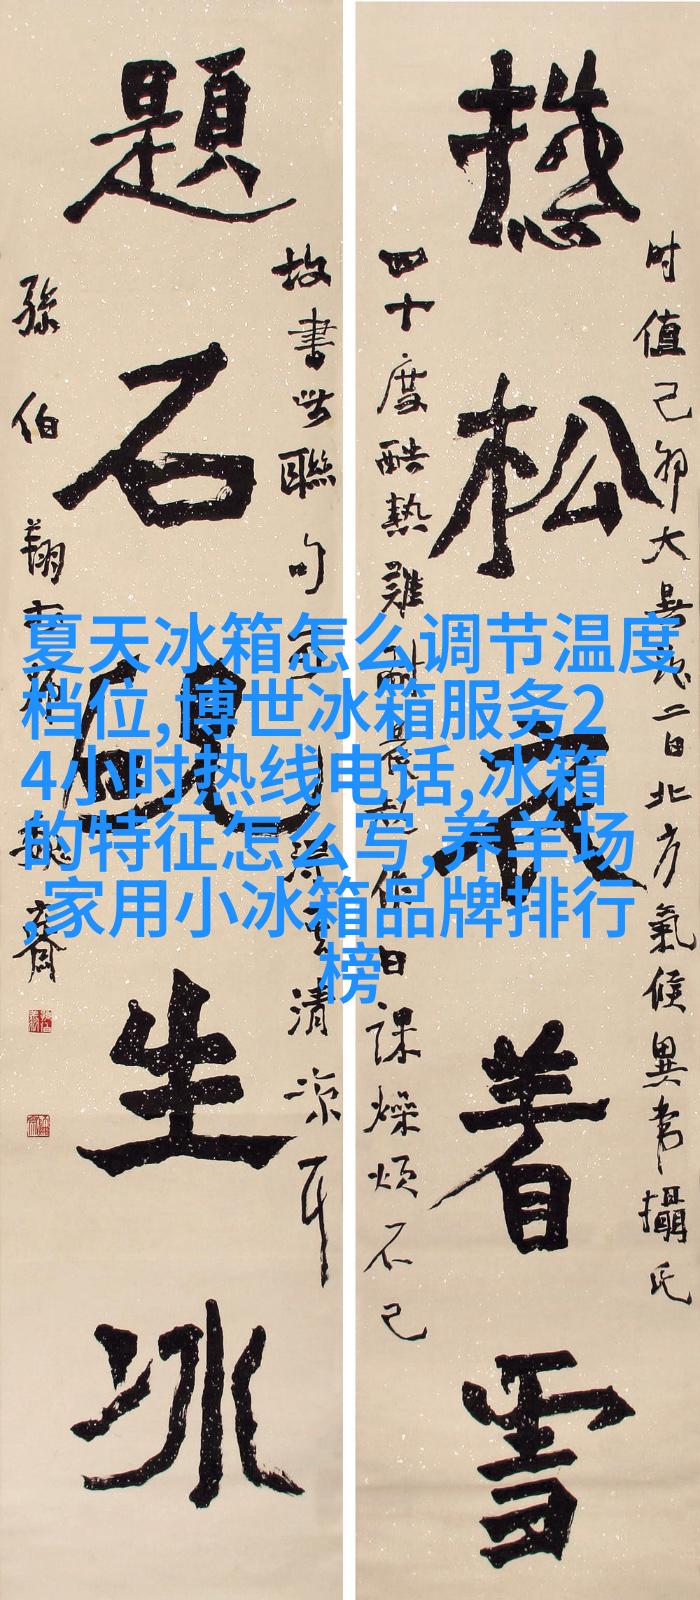 夏天冰箱怎么调节温度
档位,博世冰箱服务2
4小时热线电话,冰箱
的特征怎么写,养羊场
,家用小冰箱品牌排行
榜
时值己卯大暑後二日北方氣候異常攝氏
松衣着雪
四十度酷熱難耐晨起伯日課燥煩不已
故書此聯句清凉耳
題石硯生冰
孫伯翔齋